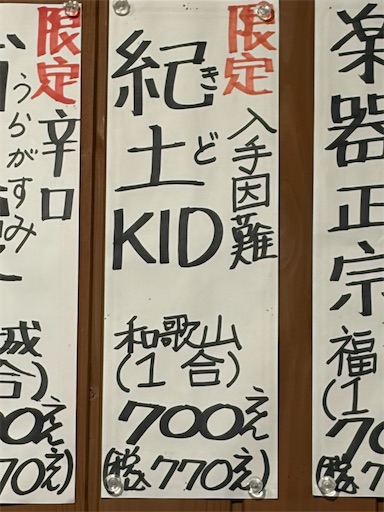 楽器正宗
福
(1
70
限定
入手因難
紀土
きど
KID
和歌山
(1合)
700えん
(税込770えん)
限定
辛口
うらがすみ
城
合)
00えん
70えん)